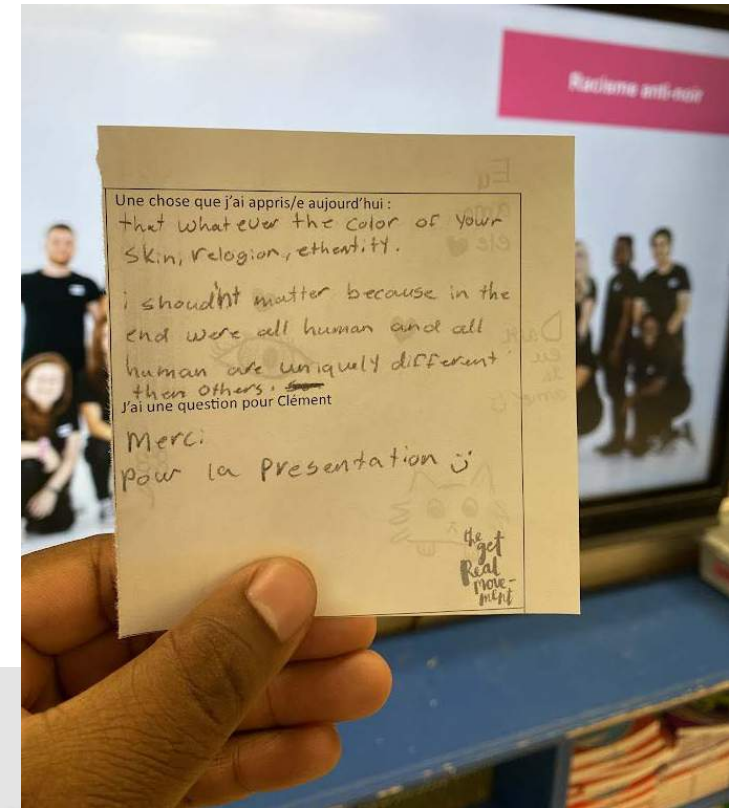 Racisme anti-noir
Une chose que j'ai appris/e aujourd'hui :
that what ever the color of your
skin, relogion, ethentity.
i shoud'nt matter because in the
end we're all human and all
human are uniquely different
then others.
J'ai une question pour Clément
Merci
pour la presentation
the
get
Real
move-
ment